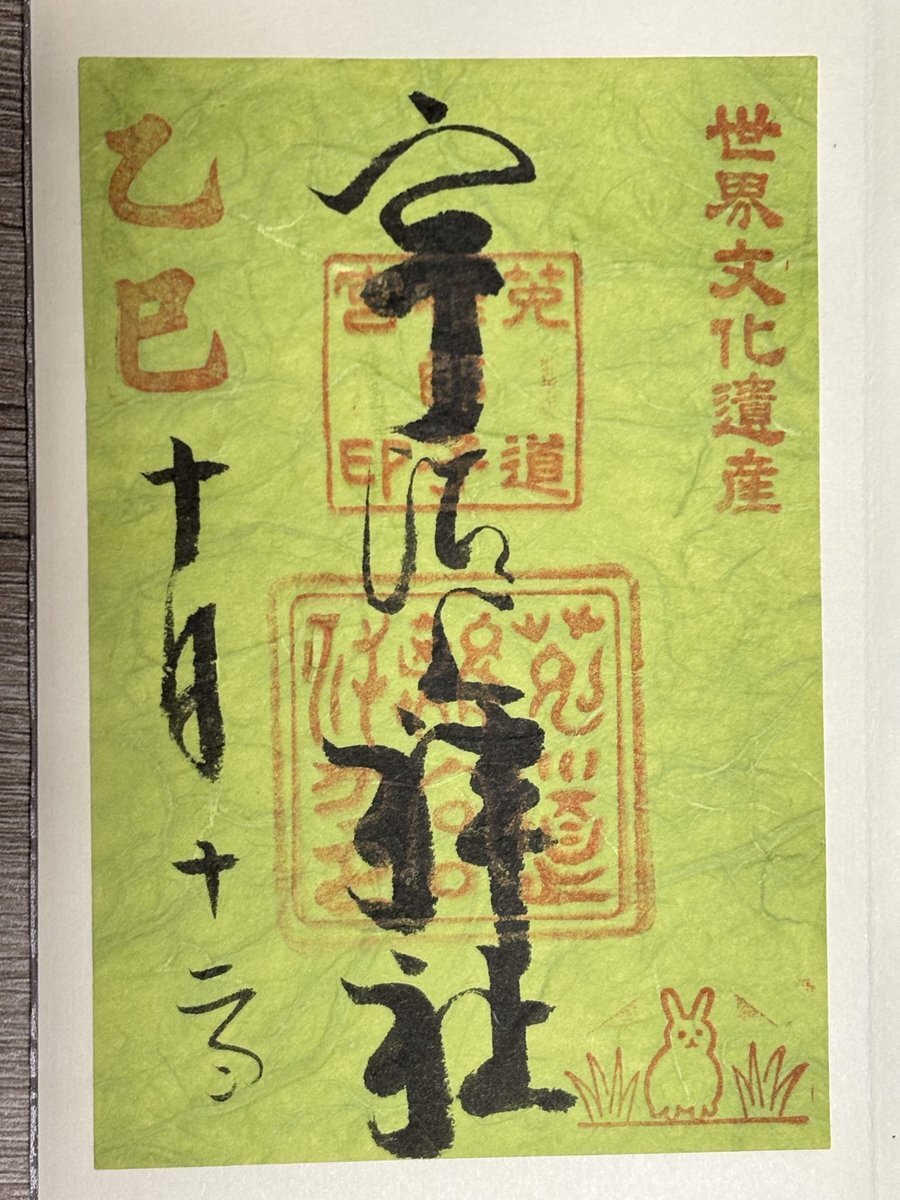 世界文化遺産
宇治上神社
莵道稚郎子宮印
乙巳
十月十二日